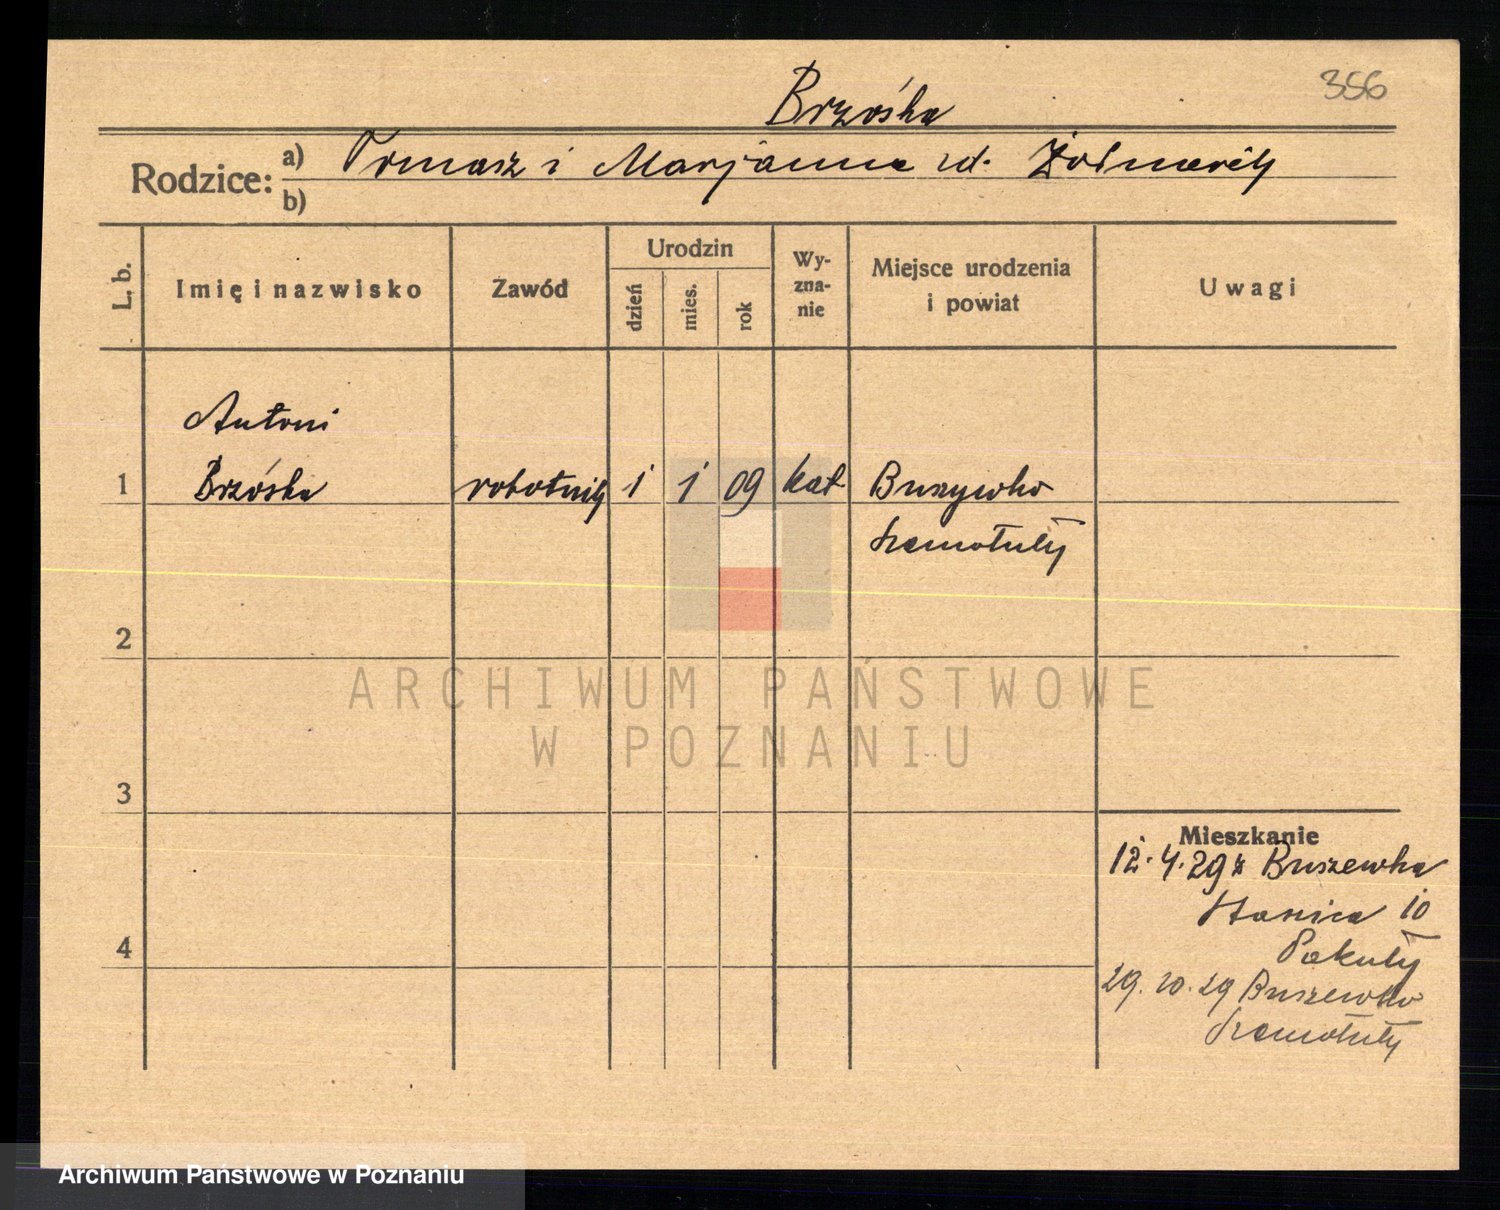 356
Brzóska
Rodzice: a) Tomasz i Marjanna zd. Żołnierek
b)
L. b. Imię i nazwisko Zawód Urodzin dzień mies. rok Wyznanie Miejsce urodzenia i powiat Uwagi
Antoni
1 Brzóska robotnik 1 1 09 kat Buszewko
Szamotuły
2
ARCHIWUM PAŃSTWOWE
W POZNANIU
3
Mieszkanie
12.4.29 z Buszewka
10
4
29.10.29 Buszewko
Szamotuły
Archiwum Państwowe w Poznaniu